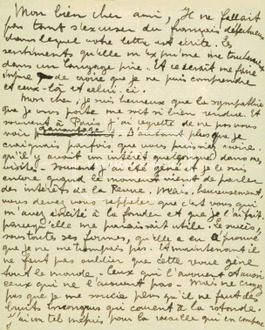 Mon bien cher ami, Il ne fallait
pas tant s'excuser du français défectueux
dans lequel votre lettre est écrite. Les
sentiments qu'elle m'exprime me touchent
dans un langage
de croire que je ne puis comprendre
et ceux-là et celui-ci.
Mon cher, je suis heureux que la sympathie
que je vous porte me soit si bien rendue. Et
souvent à Paris j'ai regretté de ne pas vous
voir davantage. D'autant plus que je
craignais parfois que vous puissiez croire
qu'il y avait un intérêt quelconque dans mes
visites. Souvent j'ai été gêné et je le suis
encore quand ce moment vient de parler
des intérêts de la Revue. Mais, heureusement,
vous devez vous rappeler que c'est vous qui
m'avez incité à la fonder et que je l'ai fait
parce qu'elle me paraissait utile. Le succès,
sous toutes ses formes, qu'elle a eu a prouvé
que je ne me trompais pas. Et maintenant il
ne faut pas oublier que cette revue gêne
tout le monde. Ceux qui l'avouent et aussi
ceux qui ne l'avouent pas. Mais ne croyez
pas que je me soucie plus qu'il ne faut des
bruits
j'ai un tel mépris pour la racaille qui